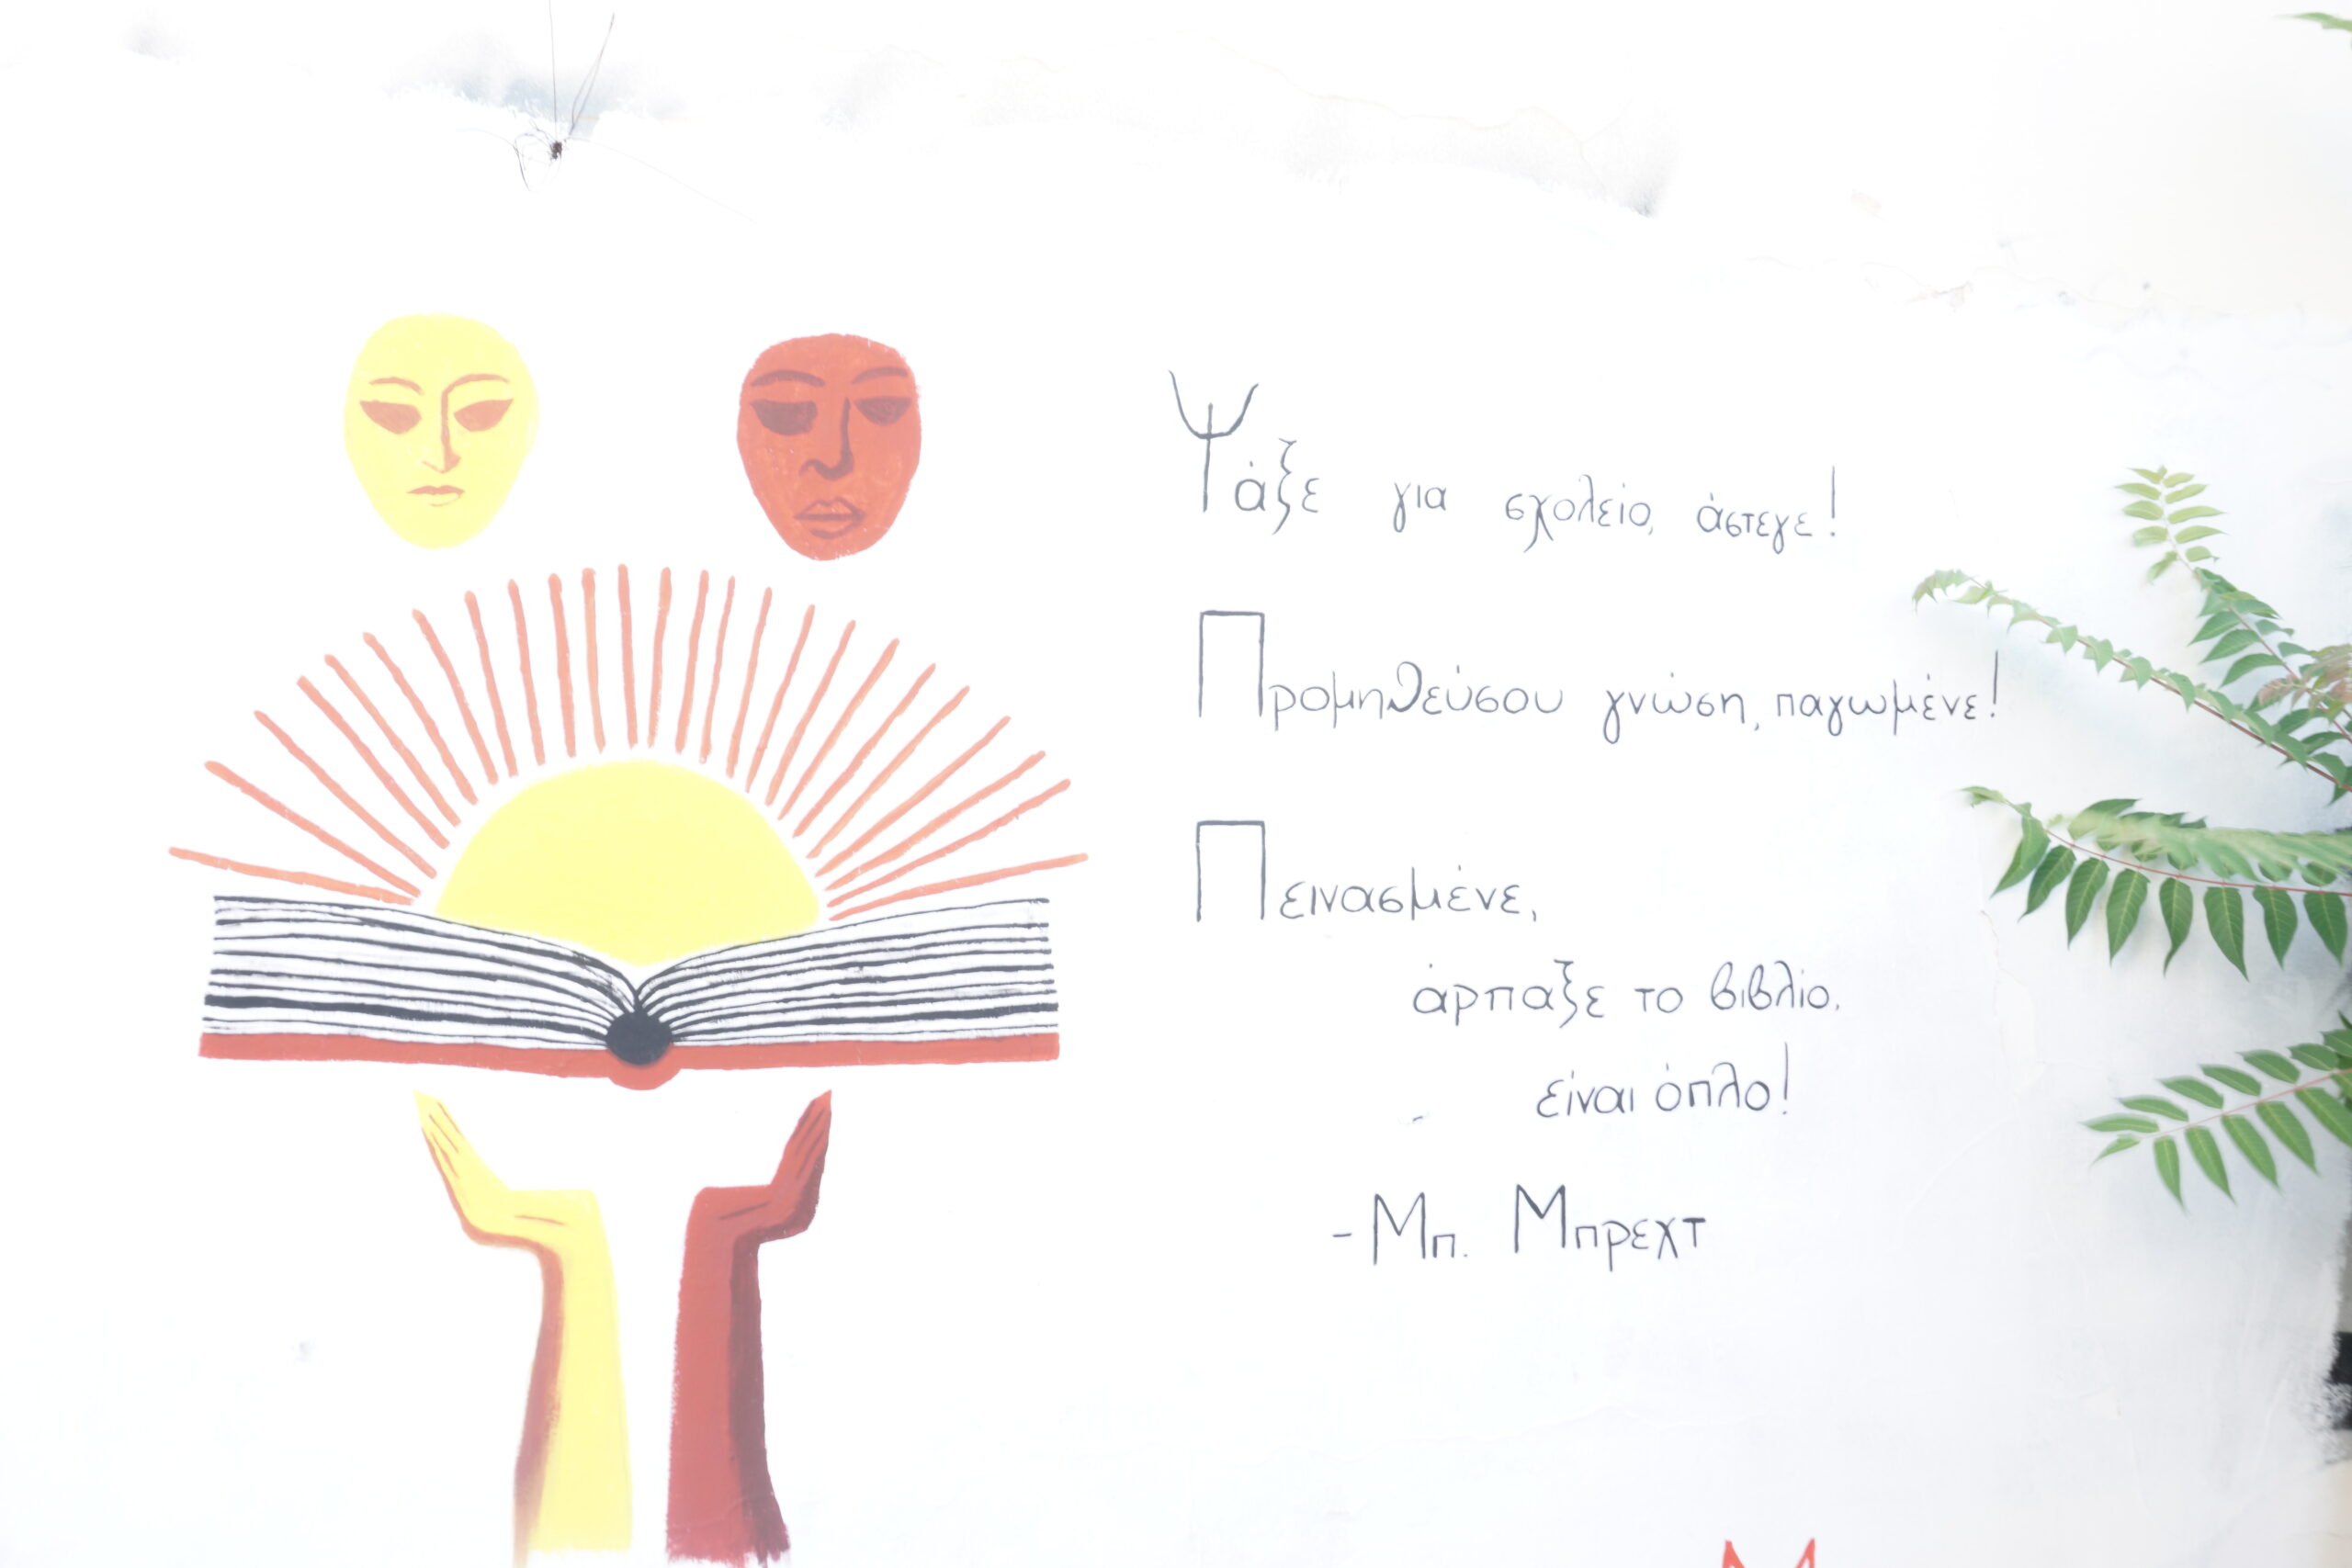 Ψάξε για σχολείο, άστεγε!
Προμηθεύσου γνώση, παγωμένε!
Πεινασμένε,
άρπαξε το βιβλίο,
είναι όπλο!
- Μπ. Μπρεχτ